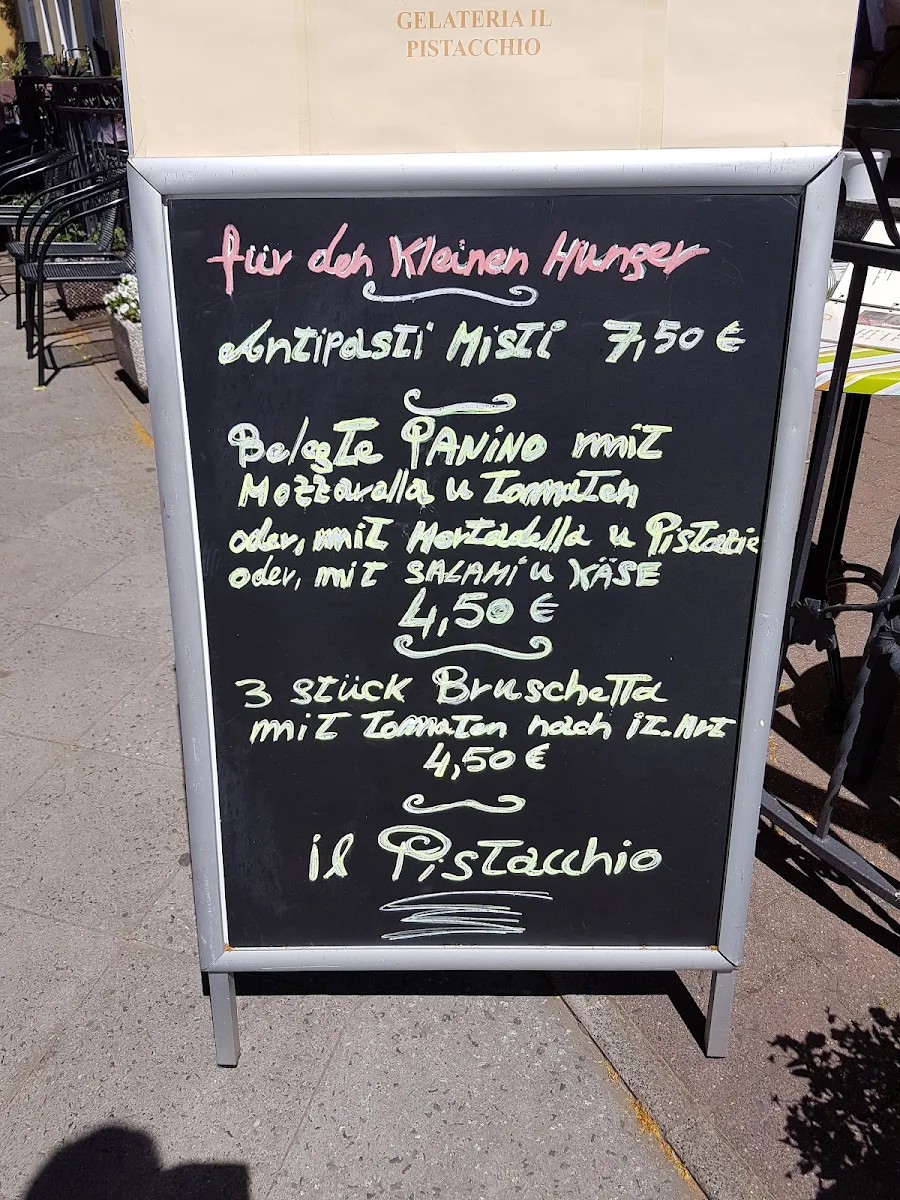 GELATERIA IL
PISTACCHIO
für den Kleinen Hunger
Antipasti Misti 7,50 €
Belegte PANiNO mit
Mozzaralla u Tomaten
oder, mit Mortadella u Pistazie
oder, mit SALAMi u KÄSE
4,50 €
3 stück Bruschetta
mit Tomaten nach it. Art
4,50 €
il Pistacchio